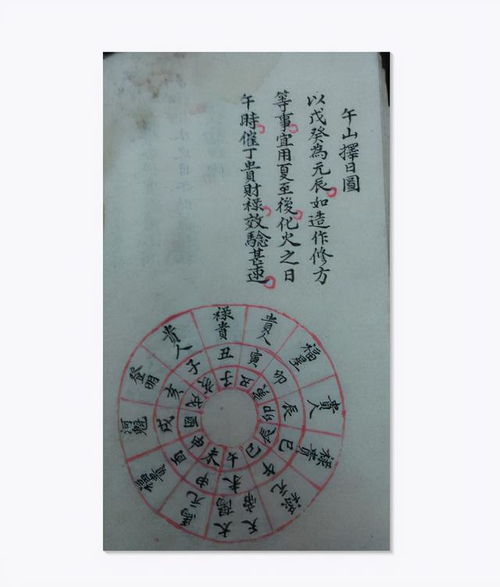 午山擇日圖
以戊癸為元辰如造作修方
等事宜用夏至後化火之日
午時催丁貴財祿效驗甚速
祿貴
貴人
福星
貴人
祿貴
天帝
太陽
河魁
登明
貴人
丑
寅
卯
辰
巳
午
未
申
酉
戌
亥
子
子
丑
寅
卯
辰
巳
午
未
申
酉
戌
亥